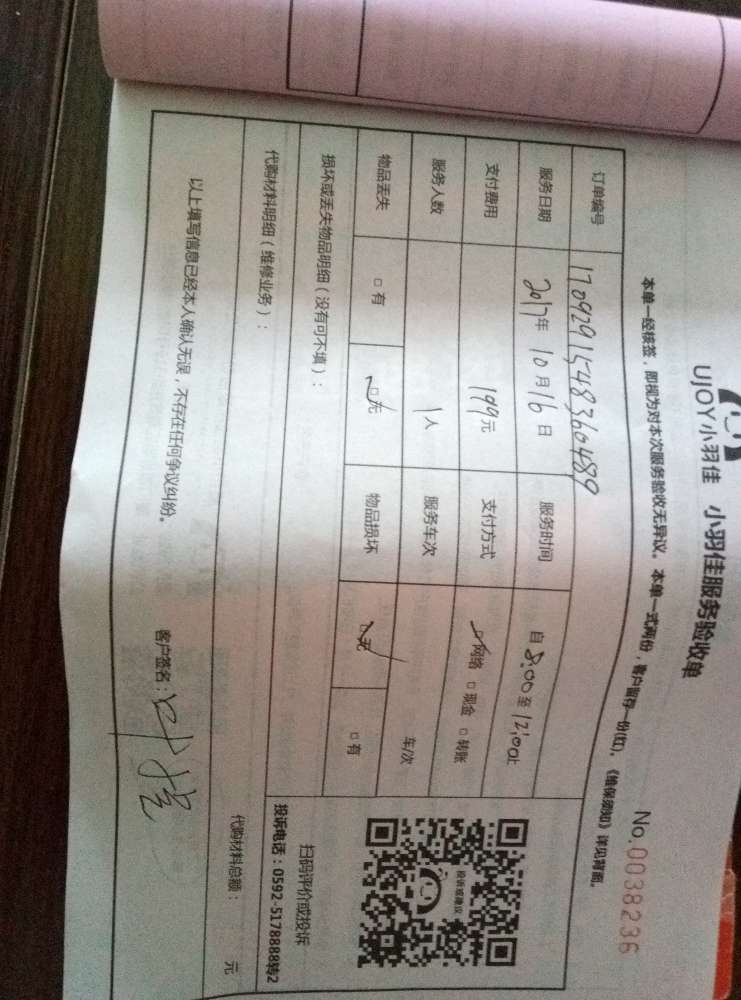 UJOY小羽佳 小羽佳服务验收单
No.0038236
本单一经核签，即视为对本次服务验收无异议。本单一式两份，客户留存一份(红)。《维保须知》详见背面。
订单编号 1709291548360489
服务日期 2017年 10月16日 服务时间 自8:00至12:00止
支付费用 199元 支付方式 ☑网络 □现金 □转账
服务人数 1人 服务车次 车/次
物品丢失 □有 ☑无 物品损坏 ☑无 □有
损坏或丢失物品明细（没有可不填）：
投诉或建议
扫码评价或投诉
投诉电话：0592-5178888转2
代购材料明细（维修业务）：
代购材料总额： 元
以上填写信息已经本人确认无误，不存在任何争议纠纷。
客户签名：